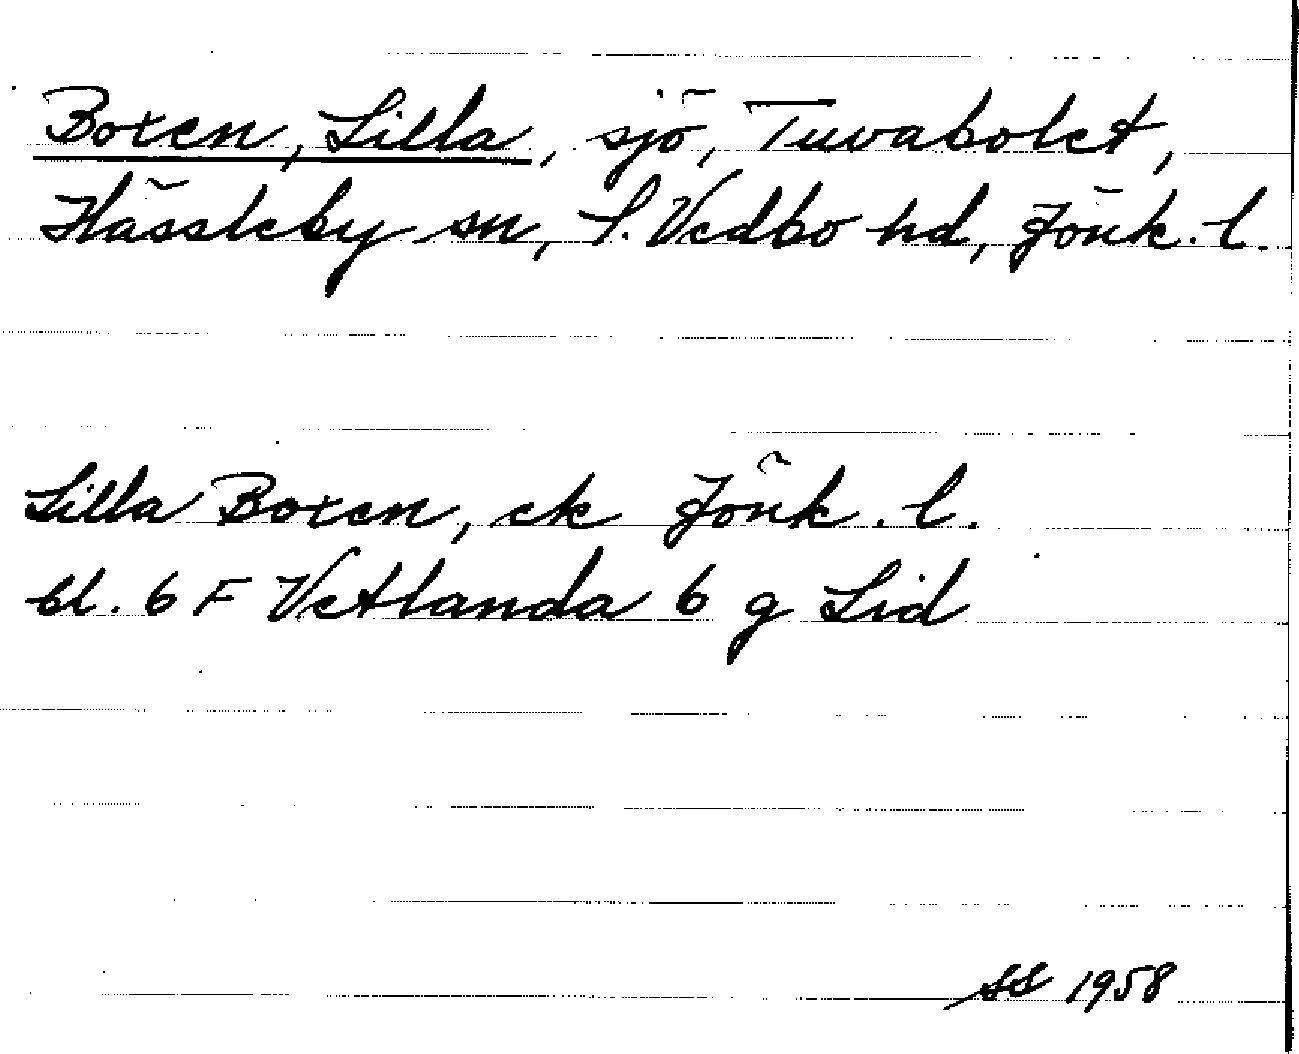 Boxen, Lilla, sjö, Tuvabolet,
Hässleby sn, S. Vedbo hd, Jönk. l.
Lilla Boxen, ek Jönk. l.
bl. 6 F Vetlanda 6 g Lid
SS 1958